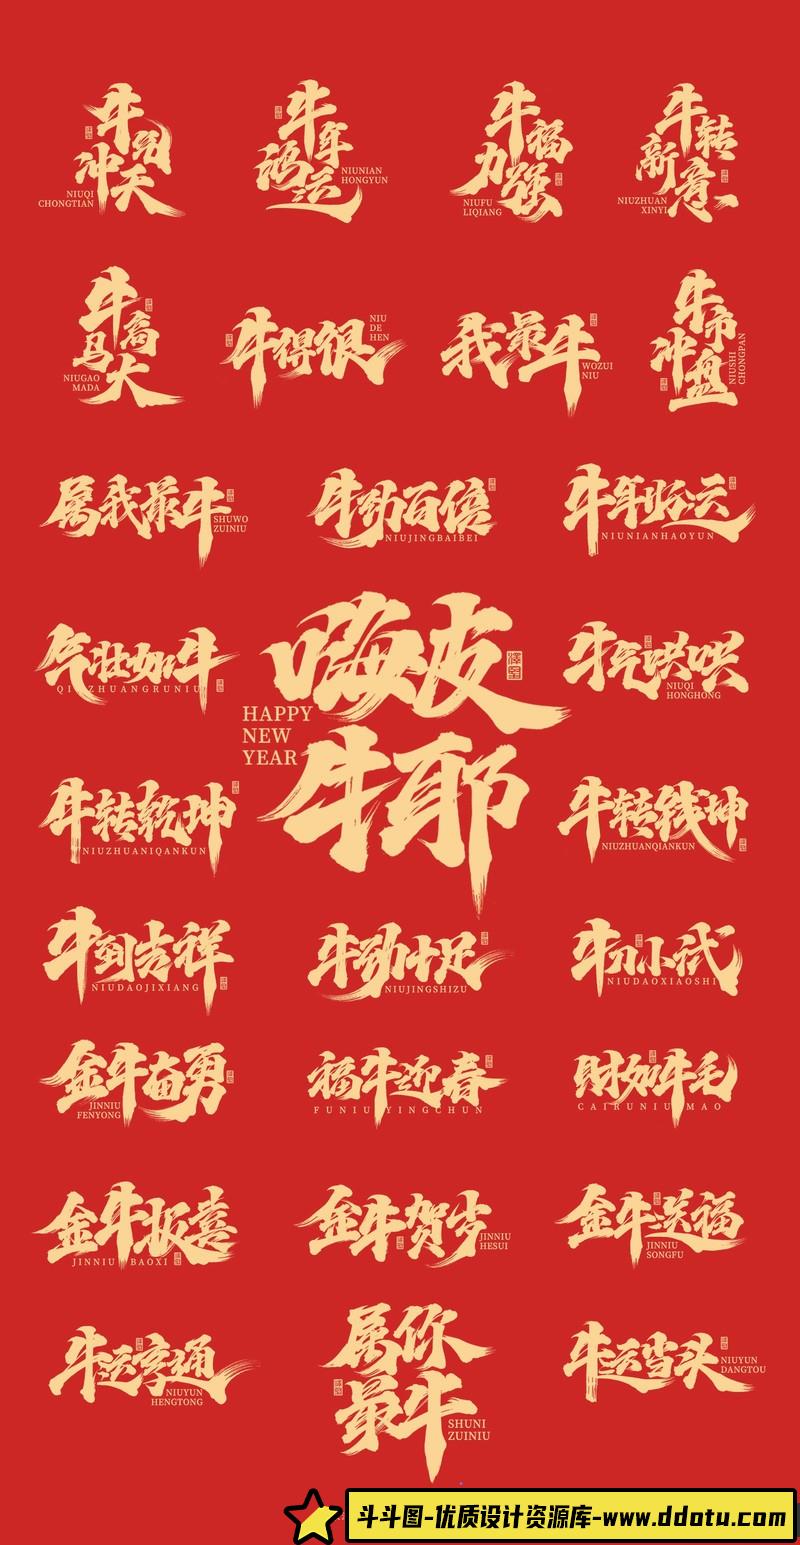 牛气冲天
NIUQI
CHONGTIAN
牛年鸿运
NIUNIAN
HONGYUN
牛福力强
NIUFU
LIQIANG
牛转新意
NIUZHUAN
XINYI
牛高马大
NIUGAO
MADA
牛得很
NIU
DE
HEN
我最牛
WOZUI
NIU
牛市冲盘
NIUSHI
CHONGPAN
属我最牛
SHUWO
ZUINIU
牛劲百倍
NIUJINGBAIBEI
牛年好运
NIUNIANHAOYUN
气壮如牛
QIZHUANGRUNIU
嗨皮
牛耶
HAPPY
NEW
YEAR
牛气哄哄
NIUQI
HONGHONG
牛转乾坤
NIUZHUANIQANKUN
牛转钱坤
NIUZHUANQIANKUN
牛到吉祥
NIUDAOJIXIANG
牛劲十足
NIUJINGSHIZU
牛刀小试
NIUDAOXIAOSHI
金牛奋勇
JINNIU
FENYONG
福牛迎春
FUNIUYINGCHUN
财如牛毛
CAIRUNIUMAO
金牛报喜
JINNIU BAOXI
金牛贺岁
JINNIU
HESUI
金牛送福
JINNIU
SONGFU
牛运亨通
NIUYUN
HENGTONG
属你
最牛
SHUNI
ZUINIU
牛运当头
NIUYUN
DANGTOU
斗斗图-优质设计资源库-www.ddotu.com